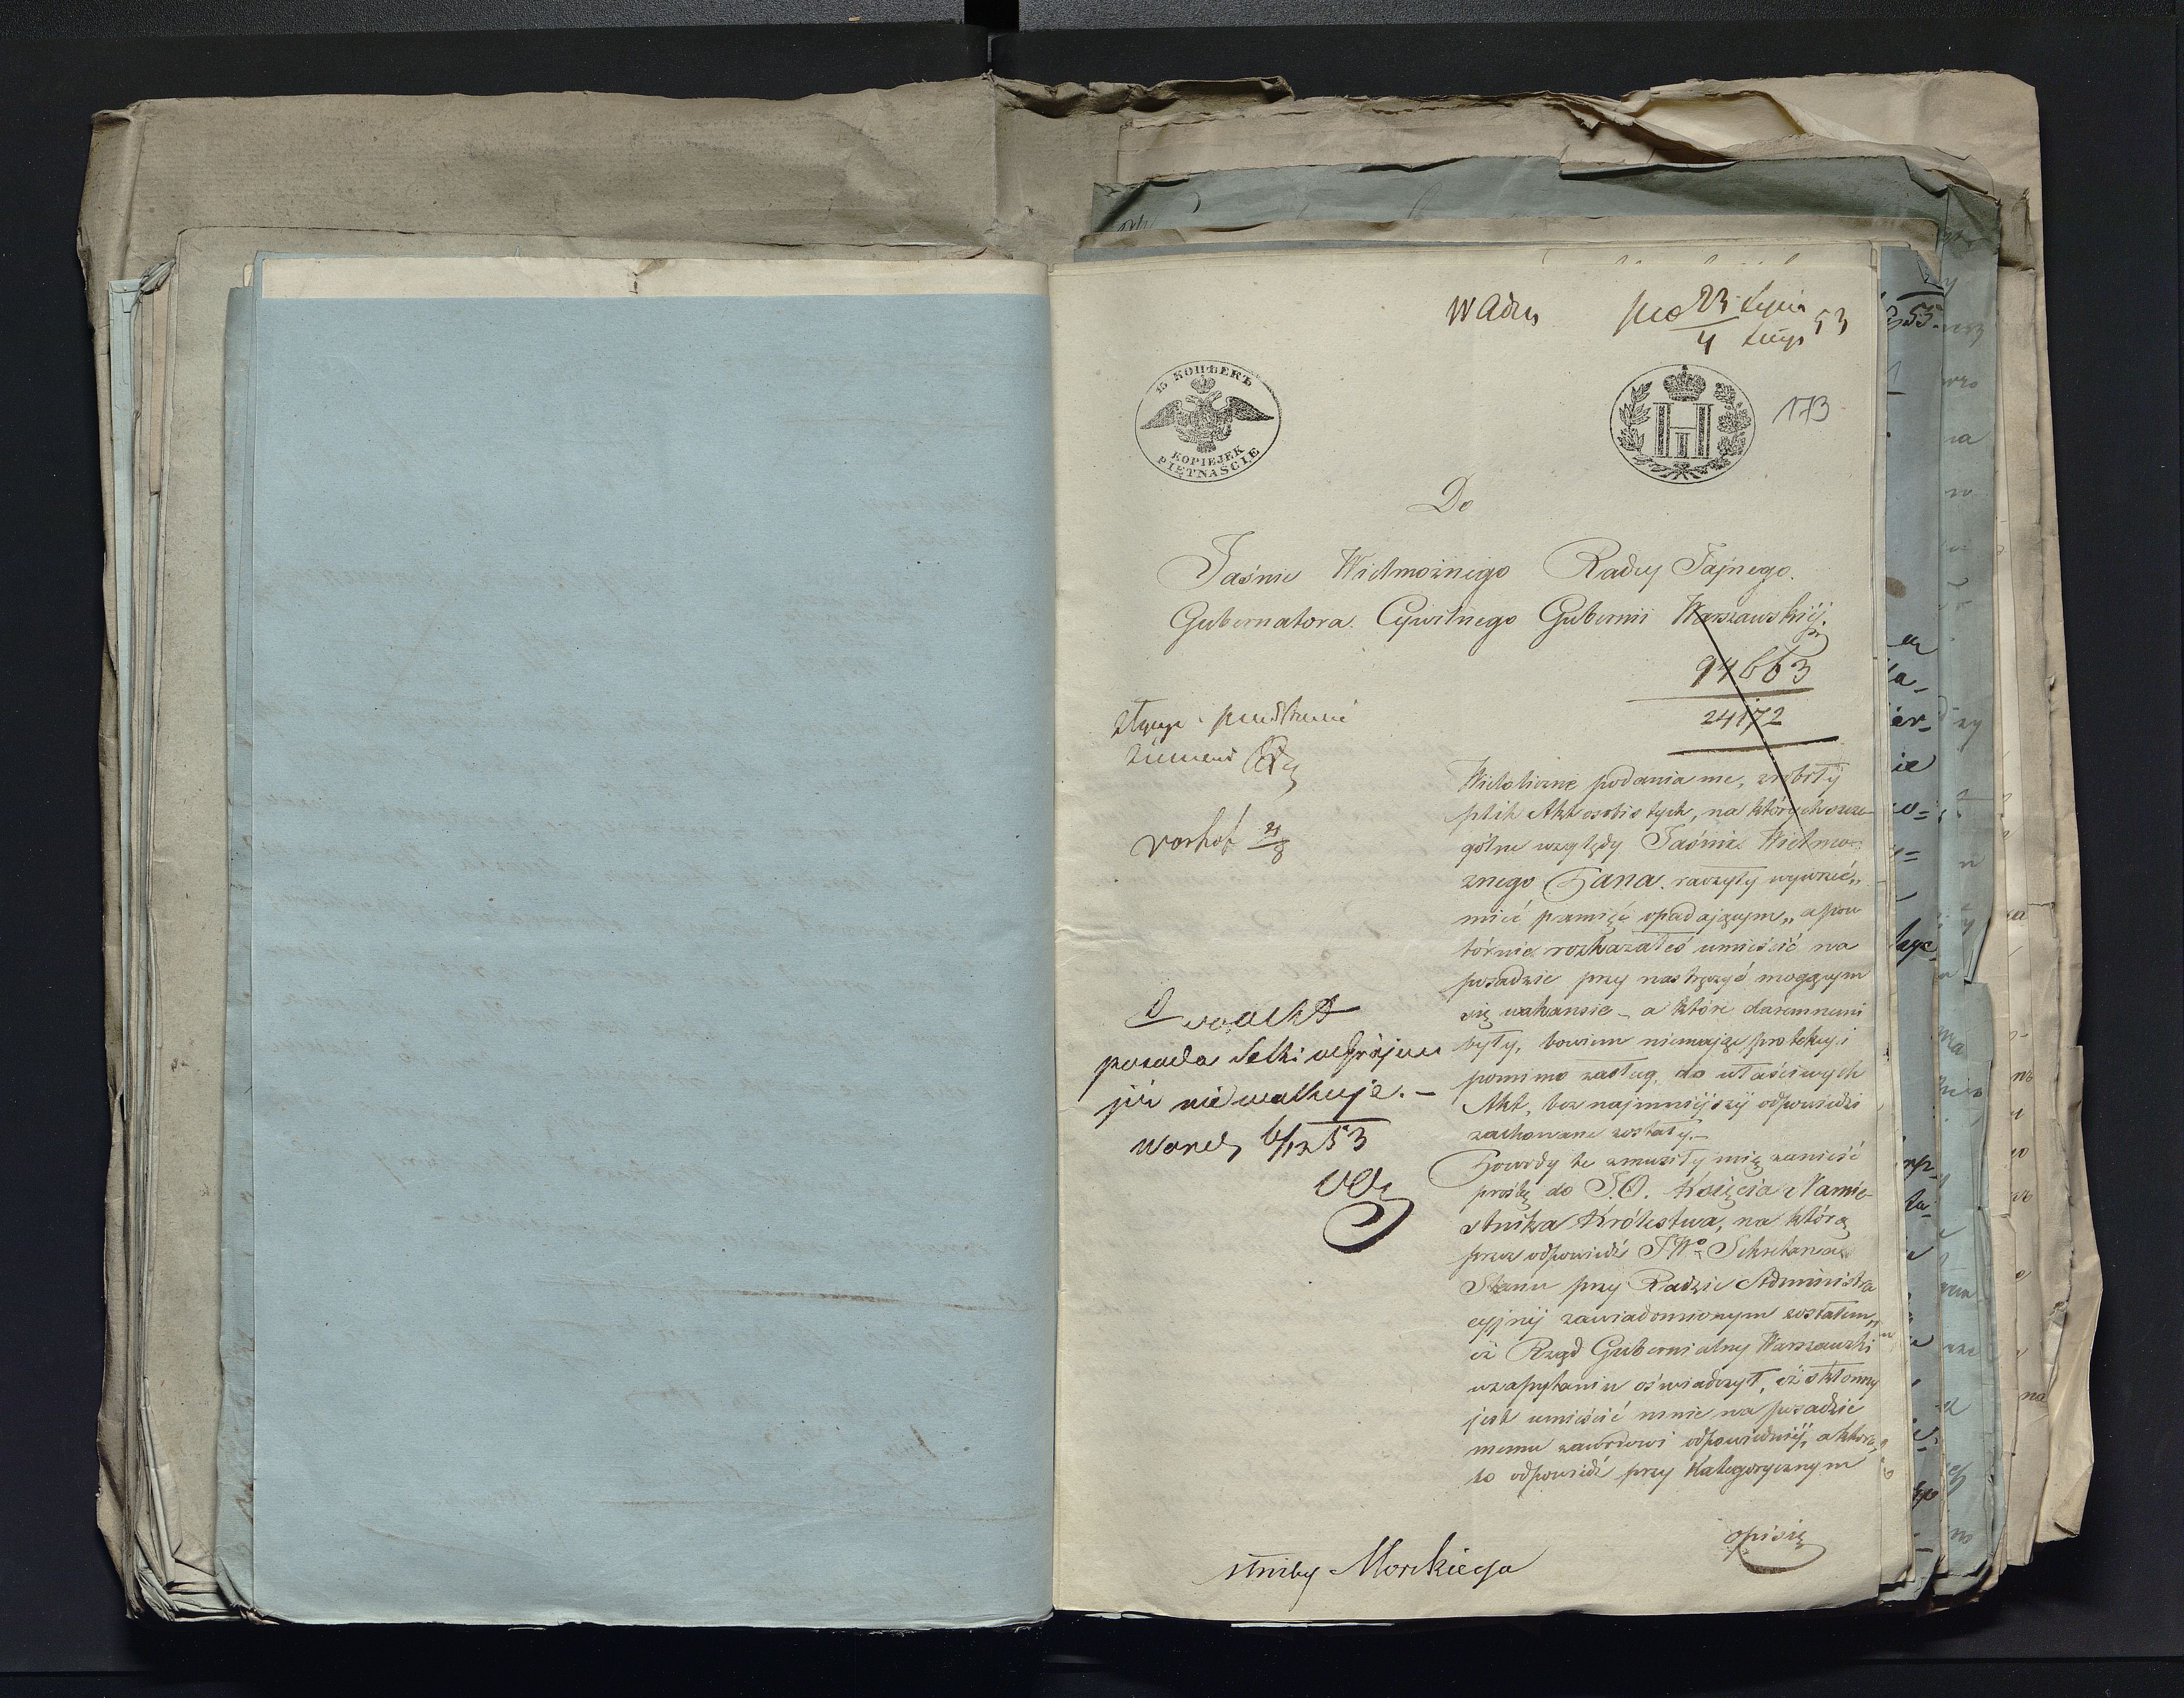 W Adm
pro 23 Lipca / 4 Sierp 53
15 КОПѢЕКЪ
KOPIEJEK
PIĘTNAŚCIE
H II
173
Do
Jaśnie Wielmożnego Radcy Tajnego.
Gubernatora Cywilnego Gubernii Warszawskiej.
94663
24172
Wieloliczne podania me, zrobiły
plik Akt osobistych, na których szcze-
gólne względy Jaśnie Wielmo-
żnego Pana raczyły wyrzec „
mieć pamięć opadającym „ a pow
tórnie rozkazałeś umieścić na
posadzie przy nastręczyć mogącym
się wakansie – a które daremnemi
były, bowiem niemając protekcyi
pomimo zasług, do właściwych
Akt, bez najmniejszej odpowiedzi
zachowane zostały.–
Powody te zmusiły mię zanieść
prośbę do J.O. Księcia Namie-
stnika Królestwa, na którą
przez odpowiedź JWo Sekretarza
Stanu przy Radzie Administra
cyjnej zawiadomionym zostałem,
iż Rząd Gubernialny Warszawski
w zapytaniu oświadczył, iż skłonny
jest umieścić mnie na posadzie
memu zawodowi odpowiedniej, a która
to odpowiedź przy kategorycznym
opisie
vorhof 21/8
posada
już nie wakuje. –
53
służby Morskiego